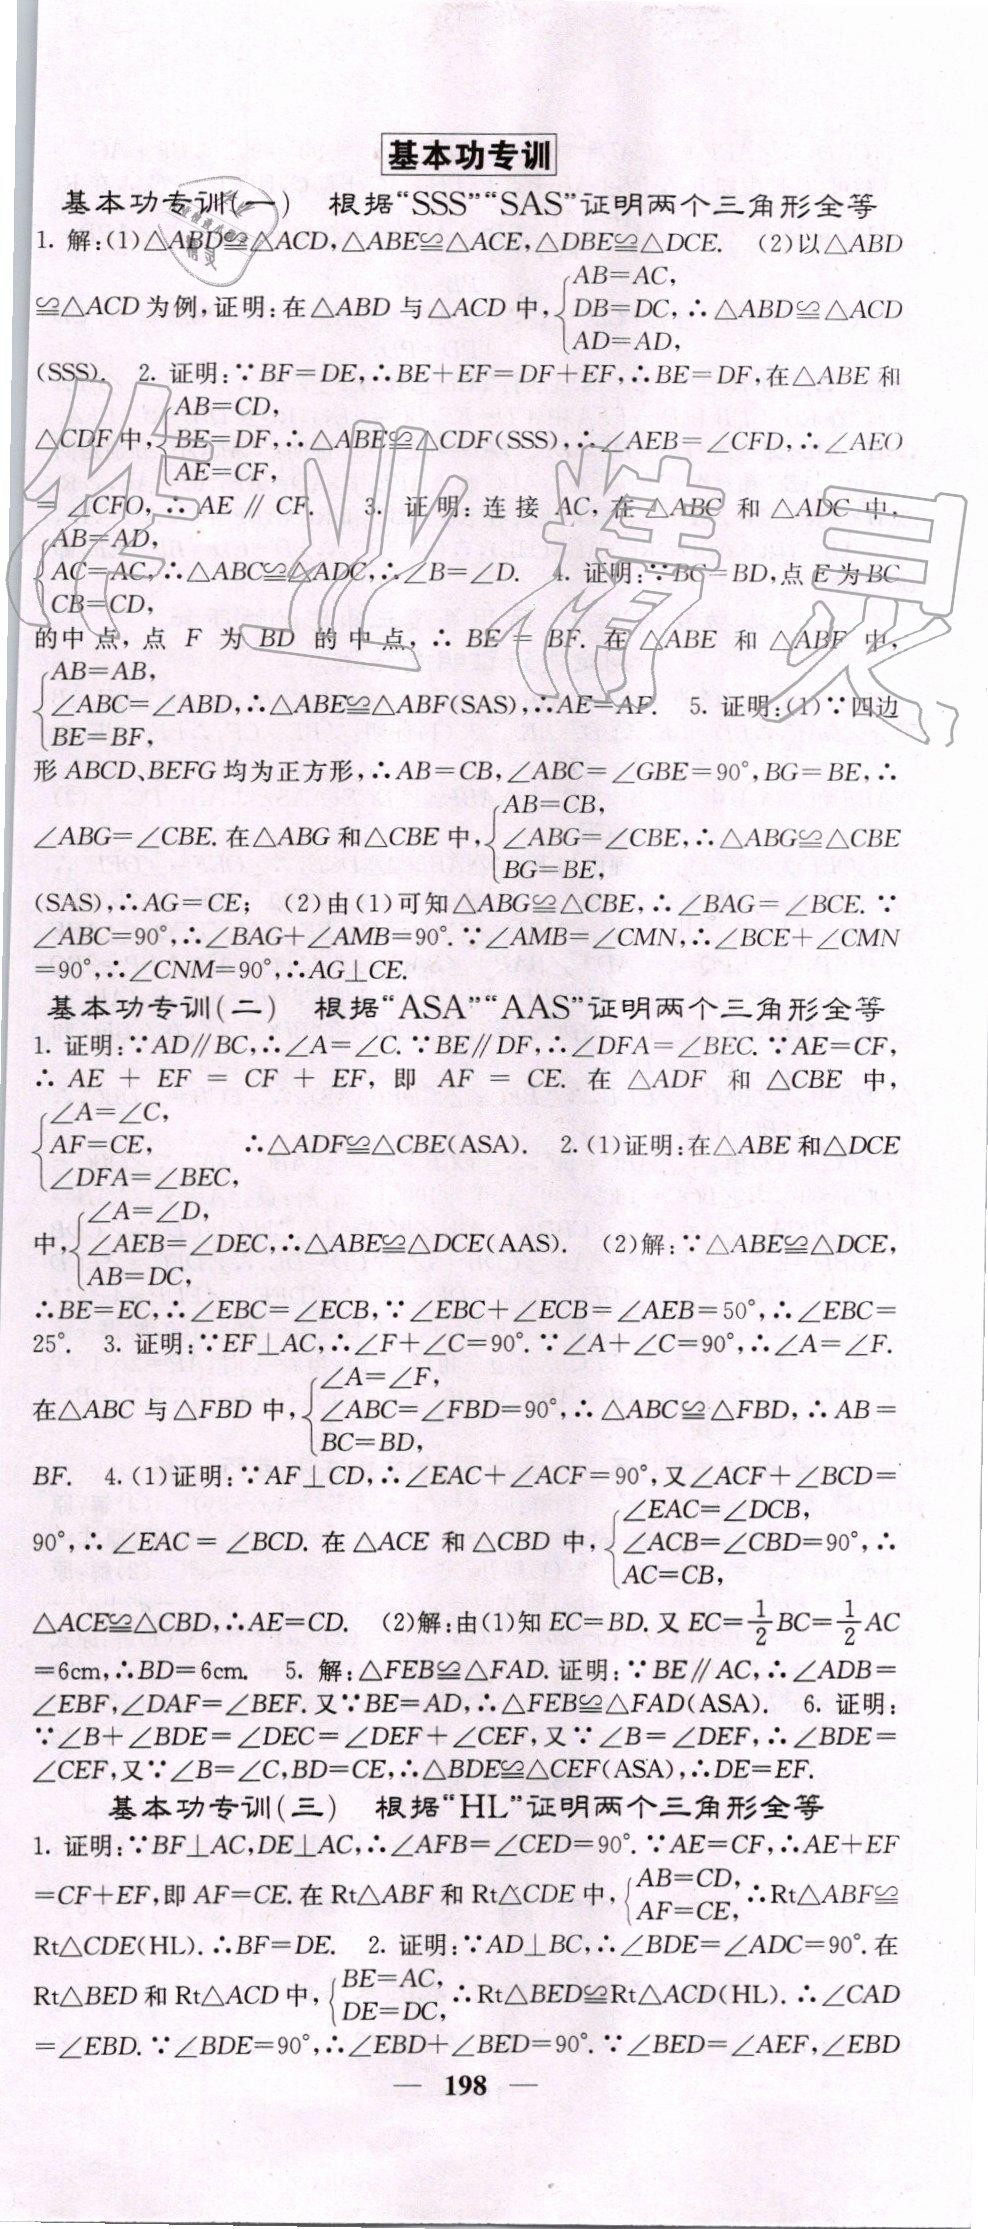 基本功专训
基本功专训(一)　根据“SSS”“SAS”证明两个三角形全等
1. 解:(1)△ABD≌△ACD,△ABE≌△ACE,△DBE≌△DCE.　(2)以△ABD
AB=AC,
≌△ACD为例,证明:在△ABD与△ACD中,{DB=DC,∴△ABD≌△ACD
AD=AD,
(SSS).　2. 证明:∵BF=DE,∴BE+EF=DF+EF,∴BE=DF,在△ABE和
AB=CD,
△CDF中,{BE=DF,∴△ABE≌△CDF(SSS),∴∠AEB=∠CFD,∴∠AEO
AE=CF,
=∠CFO,∴AE∥CF.　3. 证明:连接AC,在△ABC和△ADC中,
AB=AD,
{AC=AC,∴△ABC≌△ADC,∴∠B=∠D.　4. 证明:∵BC=BD,点E为BC
CB=CD,
的中点,点F为BD的中点,∴BE=BF.在△ABE和△ABF中,
AB=AB,
{∠ABC=∠ABD,∴△ABE≌△ABF(SAS),∴AE=AF.　5. 证明:(1)∵四边
BE=BF,
形ABCD、BEFG均为正方形,∴AB=CB,∠ABC=∠GBE=90°,BG=BE,∴
AB=CB,
∠ABG=∠CBE.在△ABG和△CBE中,{∠ABG=∠CBE,∴△ABG≌△CBE
BG=BE,
(SAS),∴AG=CE;　(2)由(1)可知△ABG≌△CBE,∴∠BAG=∠BCE.∵
∠ABC=90°,∴∠BAG+∠AMB=90°.∵∠AMB=∠CMN,∴∠BCE+∠CMN
=90°,∴∠CNM=90°,∴AG⊥CE.
基本功专训(二)　根据“ASA”“AAS”证明两个三角形全等
1. 证明:∵AD∥BC,∴∠A=∠C.∵BE∥DF,∴∠DFA=∠BEC.∵AE=CF,
∴AE+EF=CF+EF,即AF=CE.在△ADF和△CBE中,
∠A=∠C,
{AF=CE,　∴△ADF≌△CBE(ASA).　2.(1)证明:在△ABE和△DCE
∠DFA=∠BEC,
∠A=∠D,
中,{∠AEB=∠DEC,∴△ABE≌△DCE(AAS).　(2)解:∵△ABE≌△DCE,
AB=DC,
∴BE=EC,∴∠EBC=∠ECB,∵∠EBC+∠ECB=∠AEB=50°,∴∠EBC=
25°.　3. 证明:∵EF⊥AC,∴∠F+∠C=90°.∵∠A+∠C=90°,∴∠A=∠F.
∠A=∠F,
在△ABC与△FBD中,{∠ABC=∠FBD=90°,∴△ABC≌△FBD,∴AB=
BC=BD,
BF.　4.(1)证明:∵AF⊥CD,∴∠EAC+∠ACF=90°,又∠ACF+∠BCD=
∠EAC=∠DCB,
90°,∴∠EAC=∠BCD.在△ACE和△CBD中,{∠ACB=∠CBD=90°,∴
AC=CB,
△ACE≌△CBD,∴AE=CD.　(2)解:由(1)知EC=BD.又EC=1/2BC=1/2AC
=6cm,∴BD=6cm.　5. 解:△FEB≌△FAD.证明:∵BE∥AC,∴∠ADB=
∠EBF,∠DAF=∠BEF.又∵BE=AD,∴△FEB≌△FAD(ASA).　6. 证明:
∵∠B+∠BDE=∠DEC=∠DEF+∠CEF,又∵∠B=∠DEF,∴∠BDE=
∠CEF,又∵∠B=∠C,BD=CE,∴△BDE≌△CEF(ASA),∴DE=EF.
基本功专训(三)　根据“HL”证明两个三角形全等
1. 证明:∵BF⊥AC,DE⊥AC,∴∠AFB=∠CED=90°.∵AE=CF,∴AE+EF
AB=CD,
=CF+EF,即AF=CE.在Rt△ABF和Rt△CDE中,{ ∴Rt△ABF≌
AF=CE,
Rt△CDE(HL).∴BF=DE.　2. 证明:∵AD⊥BC,∴∠BDE=∠ADC=90°.在
BE=AC,
Rt△BED和Rt△ACD中,{ ∴Rt△BED≌Rt△ACD(HL).∴∠CAD
DE=DC,
=∠EBD.∵∠BDE=90°,∴∠EBD+∠BED=90°.∵∠BED=∠AEF,∠EBD
— 198 —
作业精灵